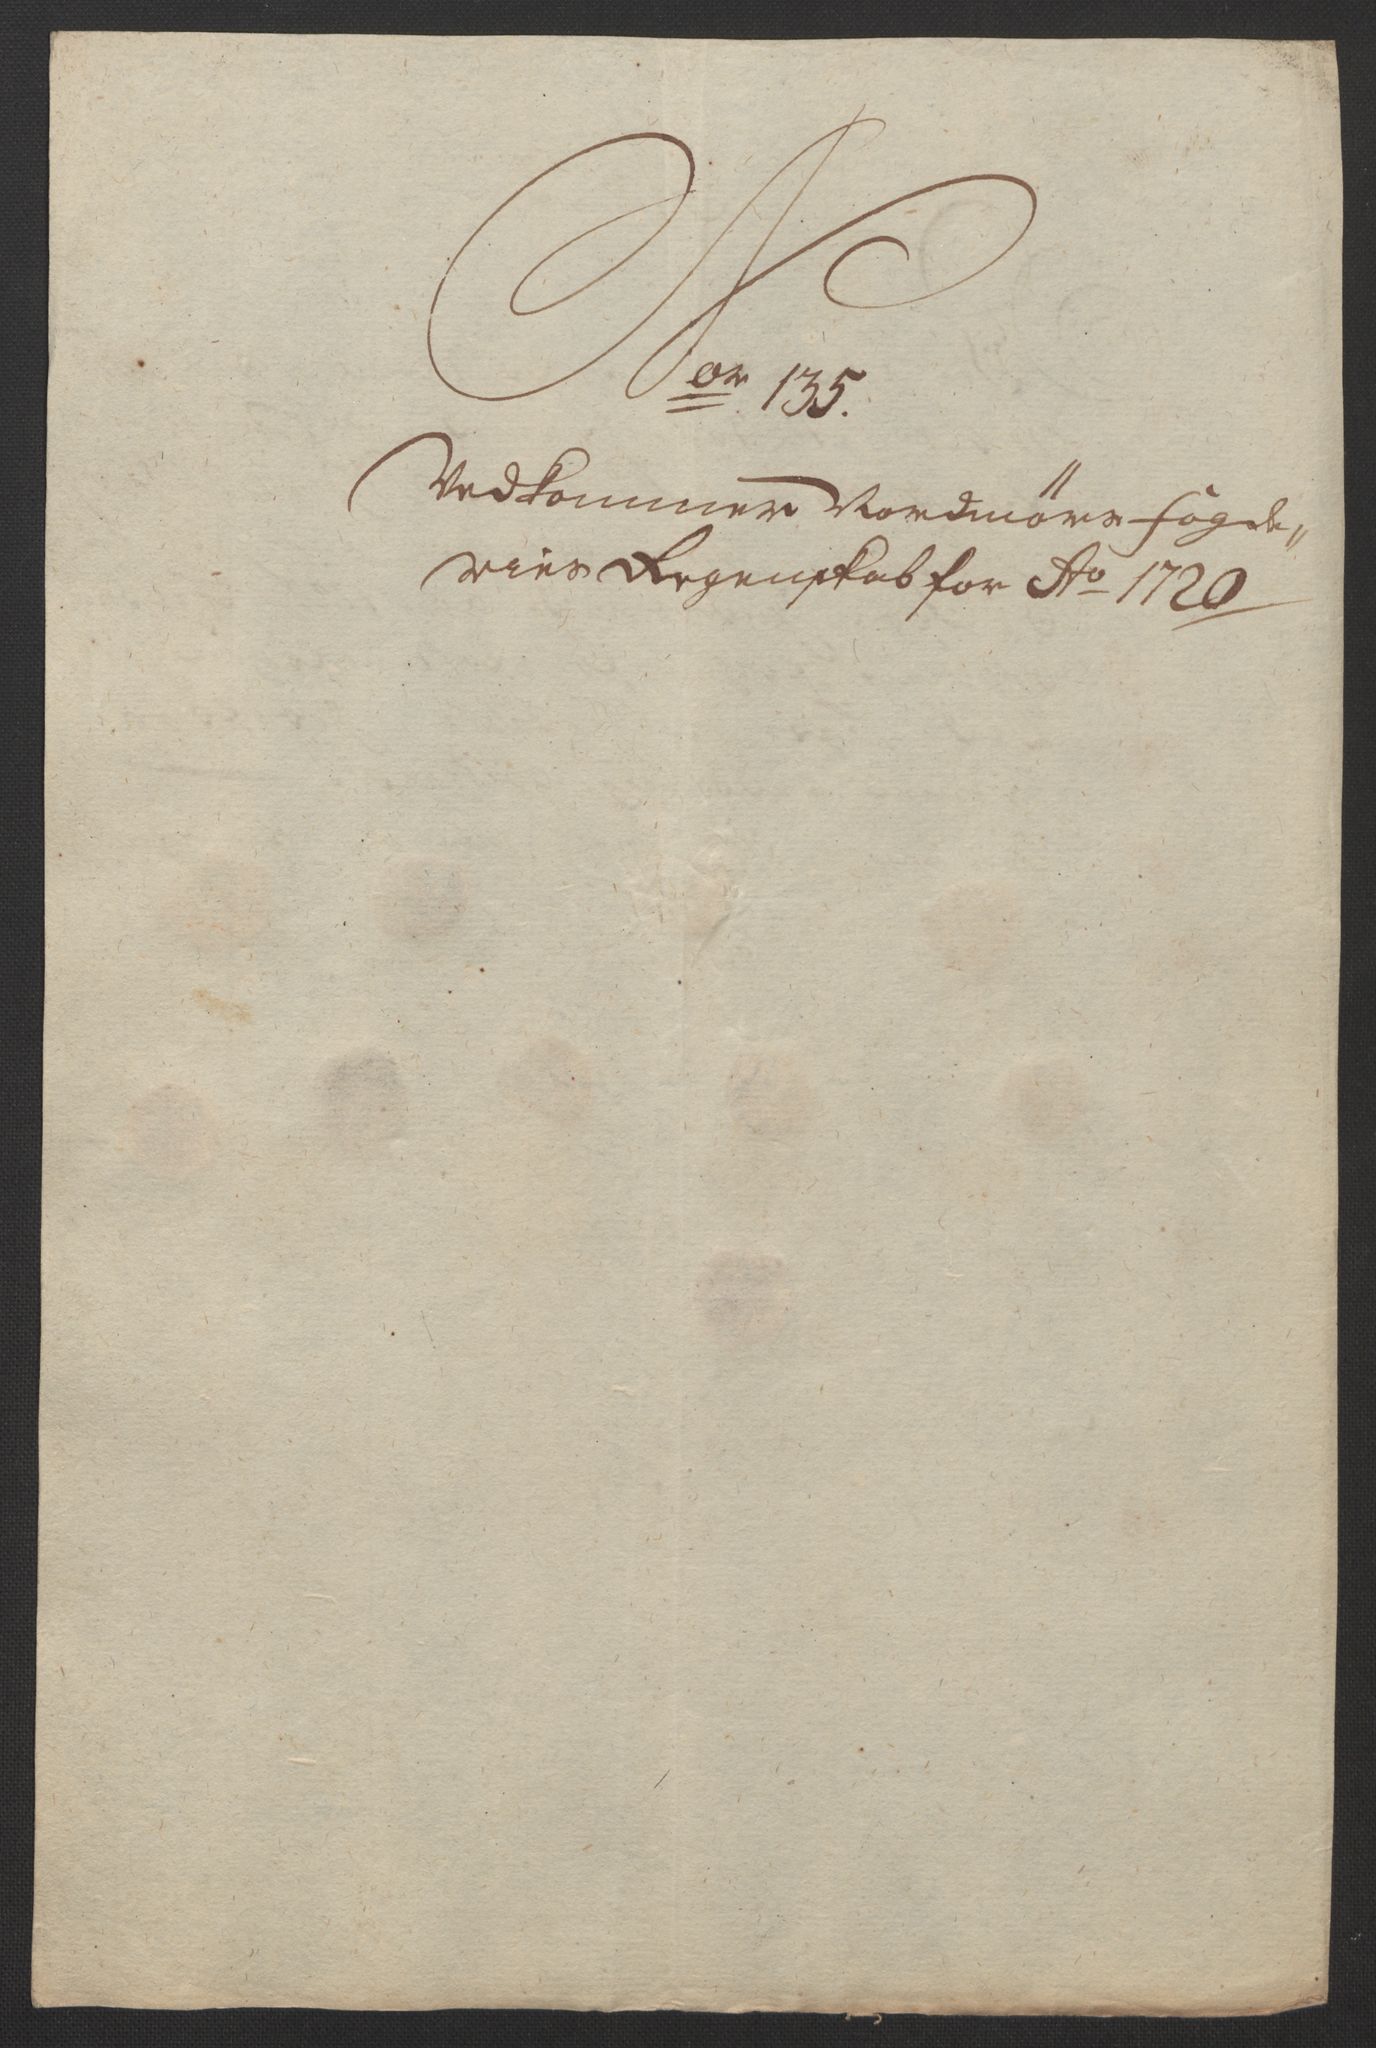 Nor 135.
Vedkommer Nordmörs fögde„
ries Regenskab for Ao 1720